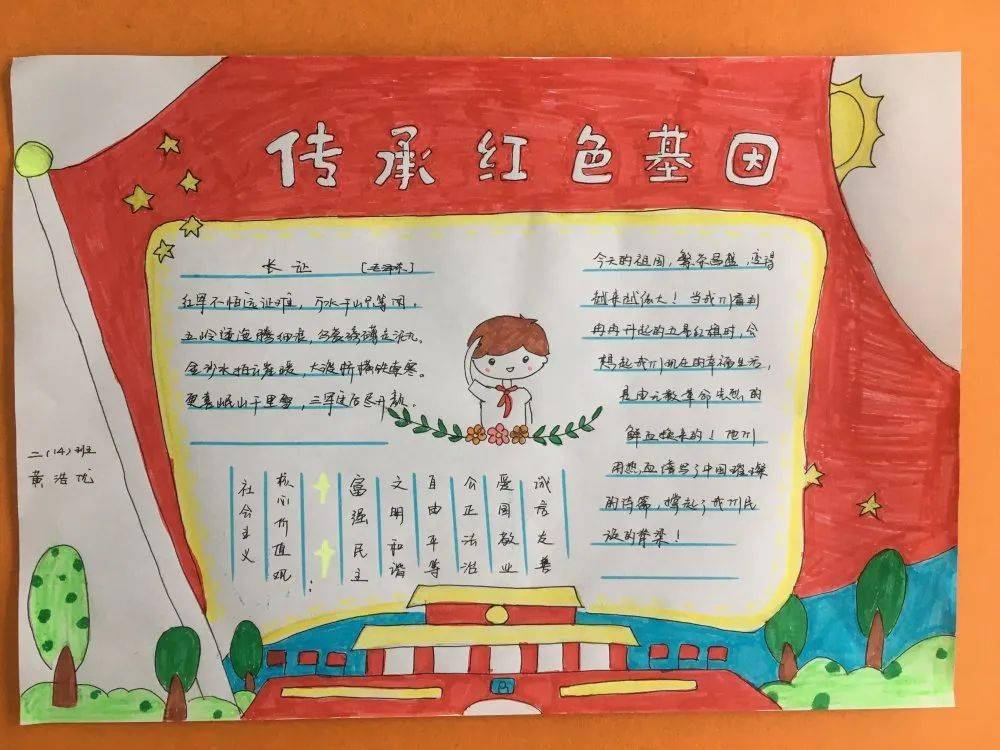 传承红色基因
长证 [毛泽东]
红军不怕远证难，万水千山只等闲。
五岭逶迤腾细浪，乌蒙磅礴走泥丸。
金沙水拍云崖暖，大渡桥横铁索寒。
更喜岷山千里雪，三军过后尽开颜。
今天的祖国，繁荣昌盛，变得
越来越强大！当我们看到
冉冉升起的五星红旗时，会
想起我们现在的幸福生活，
是由无数革命先烈的
鲜血换来的！他们
用热血谱写了中国璀璨
的诗篇，撑起了我们民
族的脊梁！
社会主义
核心价值观
富强民主
文明和谐
自由平等
公正法治
爱国敬业
诚信友善
二（14）班
黄浩优